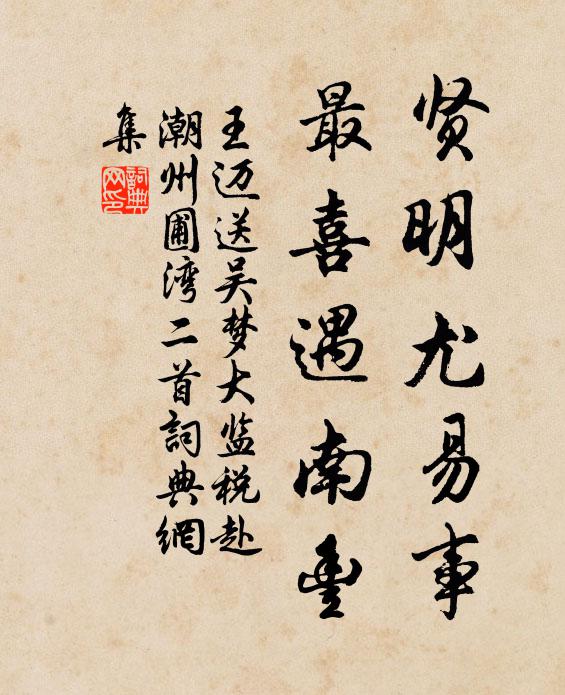 贤明尤易事
最喜遇南豐
王迈送吴梦大监税赴
潮州圃湾二首詞典網
集
詞典
网印